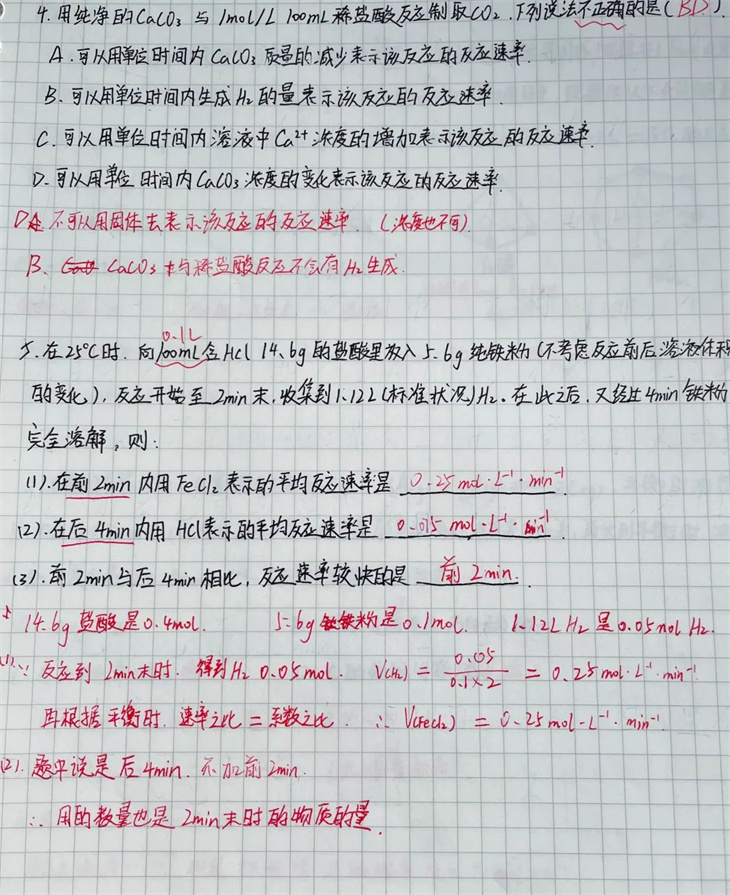 4. 用纯净的CaCO₃ 与 1mol/L 100mL 稀盐酸反应制取CO₂. 下列说法不正确的是(BD).
A. 可以用单位时间内 CaCO₃ 质量的减少表示该反应的反应速率.
B. 可以用单位时间内生成 H₂ 的量表示该反应的反应速率.
C. 可以用单位时间内 溶液中Ca²⁺ 浓度的增加表示该反应的反应速率.
D. 可以用单位时间内CaCO₃ 浓度的变化表示该反应的反应速率.
D 不可以用固体去表示该反应的反应速率. (浓度也不可).
B. CaCO₃ 与稀盐酸反应不会有H₂生成.
0.1L
5. 在25℃时. 向100mL含HCl 14.6g的盐酸里放入5.6g纯铁粉(不考虑反应前后溶液体积
的变化), 反应开始至2min末, 收集到1.12L(标准状况)H₂. 在此之后, 又经过4min 铁粉
完全溶解. 则:
(1). 在前2min 内用FeCl₂ 表示的平均反应速率是 0.25 mol·L⁻¹·min⁻¹.
(2). 在后4min内用 HCl表示的平均反应速率是 0.075 mol·L⁻¹·min⁻¹.
(3). 前2min与后4min相比, 反应速率较快的是 前2min.
5 14.6g 盐酸是0.4mol. 5.6g 铁粉是0.1mol. 1.12L H₂ 是0.05mol H₂.
(1).∵ 反应到2min末时. 得到H₂ 0.05mol. V(H₂) = 0.05/0.1×2 = 0.25mol·L⁻¹·min⁻¹
再根据平衡时. 速率之比=系数之比. ∴ V(FeCl₂) = 0.25mol·L⁻¹·min⁻¹.
(2). 题中说是后4min. 不加前2min.
∴ 用的数量也是2min末时的物质的量.